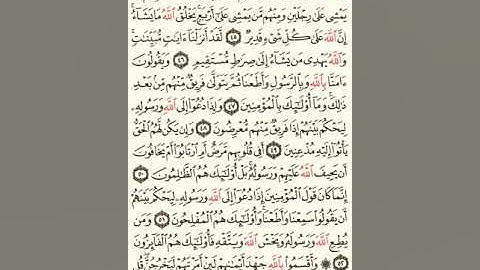 يَمْشِى عَلَىٰ رِجْلَيْنِ وَمِنْهُم مَّن يَمْشِى عَلَىٰٓ أَرْبَعٍ ۚ يَخْلُقُ ٱللَّهُ مَا يَشَآءُ ۚ
إِنَّ ٱللَّهَ عَلَىٰ كُلِّ شَىْءٍ قَدِيرٌ ٤٥ لَّقَدْ أَنزَلْنَآ ءَايَٰتٍ مُّبَيِّنَٰتٍ ۚ
وَٱللَّهُ يَهْدِى مَن يَشَآءُ إِلَىٰ صِرَٰطٍ مُّسْتَقِيمٍ ٤٦ وَيَقُولُونَ
ءَامَنَّا بِٱللَّهِ وَبِٱلرَّسُولِ وَأَطَعْنَا ثُمَّ يَتَوَلَّىٰ فَرِيقٌ مِّنْهُم مِّنۢ بَعْدِ
ذَٰلِكَ ۚ وَمَآ أُو۟لَٰٓئِكَ بِٱلْمُؤْمِنِينَ ٤٧ وَإِذَا دُعُوٓا۟ إِلَى ٱللَّهِ وَرَسُولِهِۦ
لِيَحْكُمَ بَيْنَهُمْ إِذَا فَرِيقٌ مِّنْهُم مُّعْرِضُونَ ٤٨ وَإِن يَكُن لَّهُمُ ٱلْحَقُّ
يَأْتُوٓا۟ إِلَيْهِ مُذْعِنِينَ ٤٩ أَفِى قُلُوبِهِم مَّرَضٌ أَمِ ٱرْتَابُوٓا۟ أَمْ يَخَافُونَ
أَن يَحِيفَ ٱللَّهُ عَلَيْهِمْ وَرَسُولُهُۥ ۚ بَلْ أُو۟لَٰٓئِكَ هُمُ ٱلظَّٰلِمُونَ ٥٠
إِنَّمَا كَانَ قَوْلَ ٱلْمُؤْمِنِينَ إِذَا دُعُوٓا۟ إِلَى ٱللَّهِ وَرَسُولِهِۦ لِيَحْكُمَ بَيْنَهُمْ
أَن يَقُولُوا۟ سَمِعْنَا وَأَطَعْنَا ۚ وَأُو۟لَٰٓئِكَ هُمُ ٱلْمُفْلِحُونَ ٥١ وَمَن
يُطِعِ ٱللَّهَ وَرَسُولَهُۥ وَيَخْشَ ٱللَّهَ وَيَتَّقْهِ فَأُو۟لَٰٓئِكَ هُمُ ٱلْفَآئِزُونَ
٥٢ ۞ وَأَقْسَمُوا۟ بِٱللَّهِ جَهْدَ أَيْمَٰنِهِمْ لَئِنْ أَمَرْتَهُمْ لَيَخْرُجُنَّ ۖ قُل